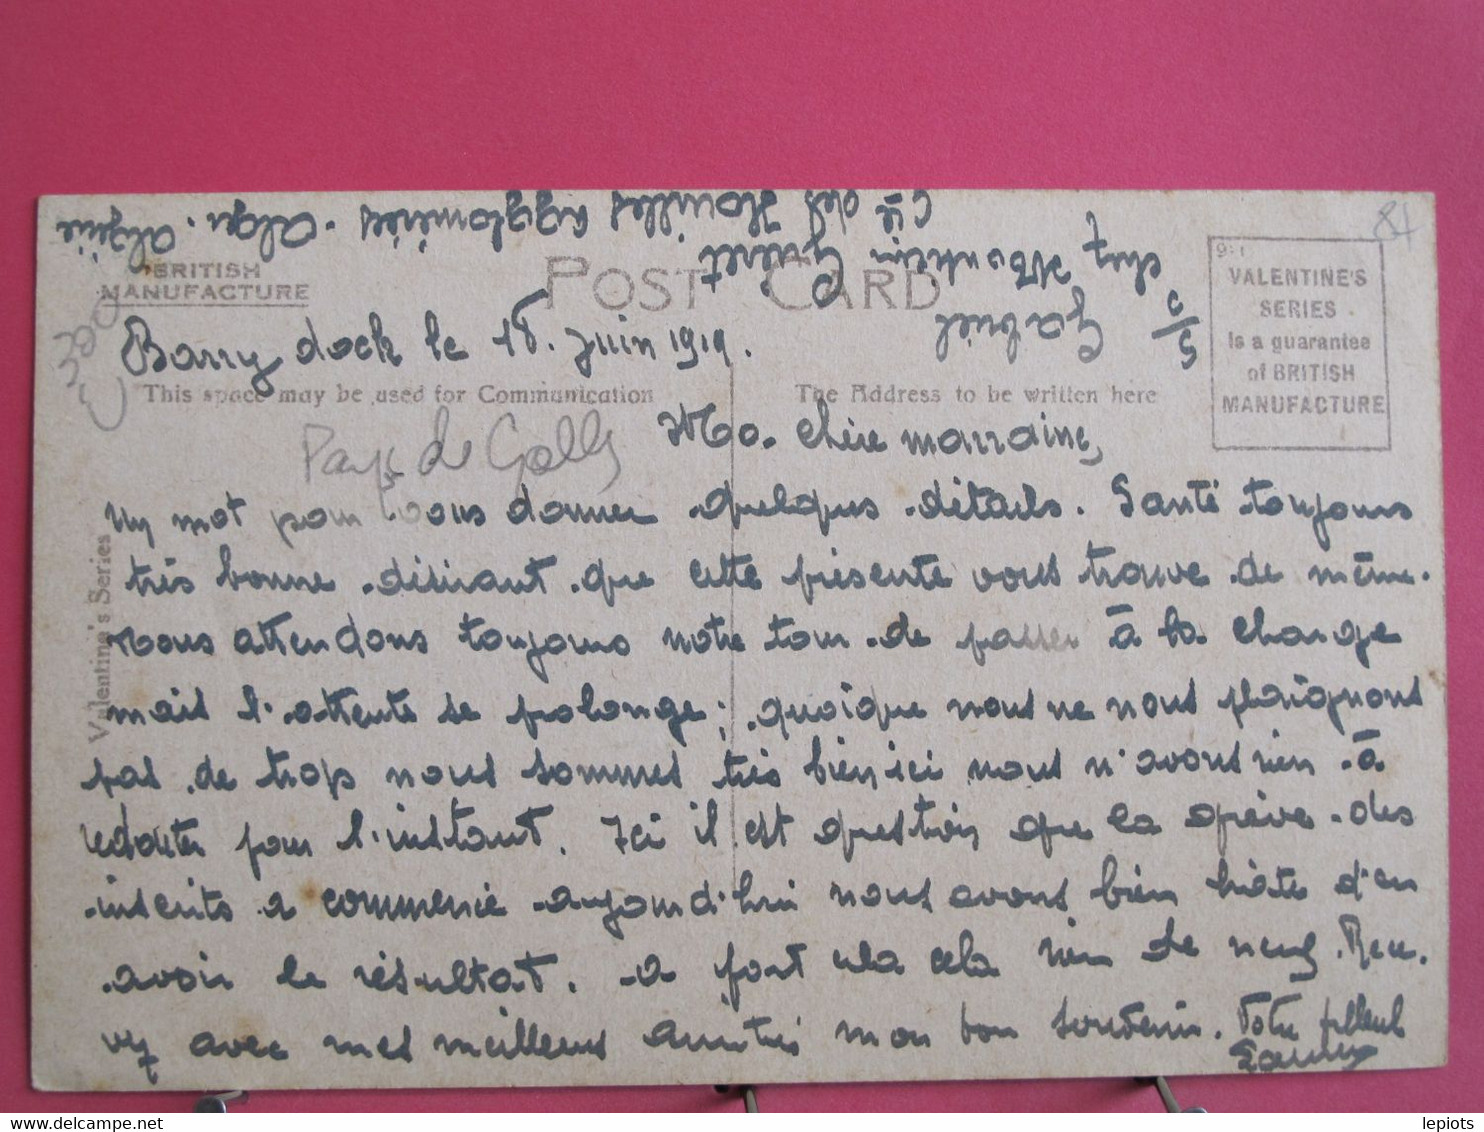 Cie des Houilles Agglomérées. Alger. Algérie
chez Monsieur Guéret
S/S
Gabriel
BRITISH
MANUFACTURE
POST CARD
84
9:1
VALENTINE'S
SERIES
is a guarantee
of BRITISH
MANUFACTURE
Barry dock le 18. Juin 1919.
This space may be used for Communication
The Address to be written here
Pays de Galles
Valentine's Series
Ma. chère marraine,
Un mot pour vous donner quelques détails. Santé toujours
très bonne désirant que cette présente vous trouve de même.
Nous attendons toujours notre tour de passer à la change
mais l'attente se prolonge; quoique nous ne nous plaignons
pas de trop nous sommes très bien ici nous n'avons rien à
redouter pour l'instant. Ici il est question que la grève des
inscrits a commencé aujourd'hui nous avons bien hâte d'en
avoir le résultat. a part cela rien de neuf. Rece.
vez avec mes meilleurs amitiés mon bon souvenir. Votre filleul
lepiots